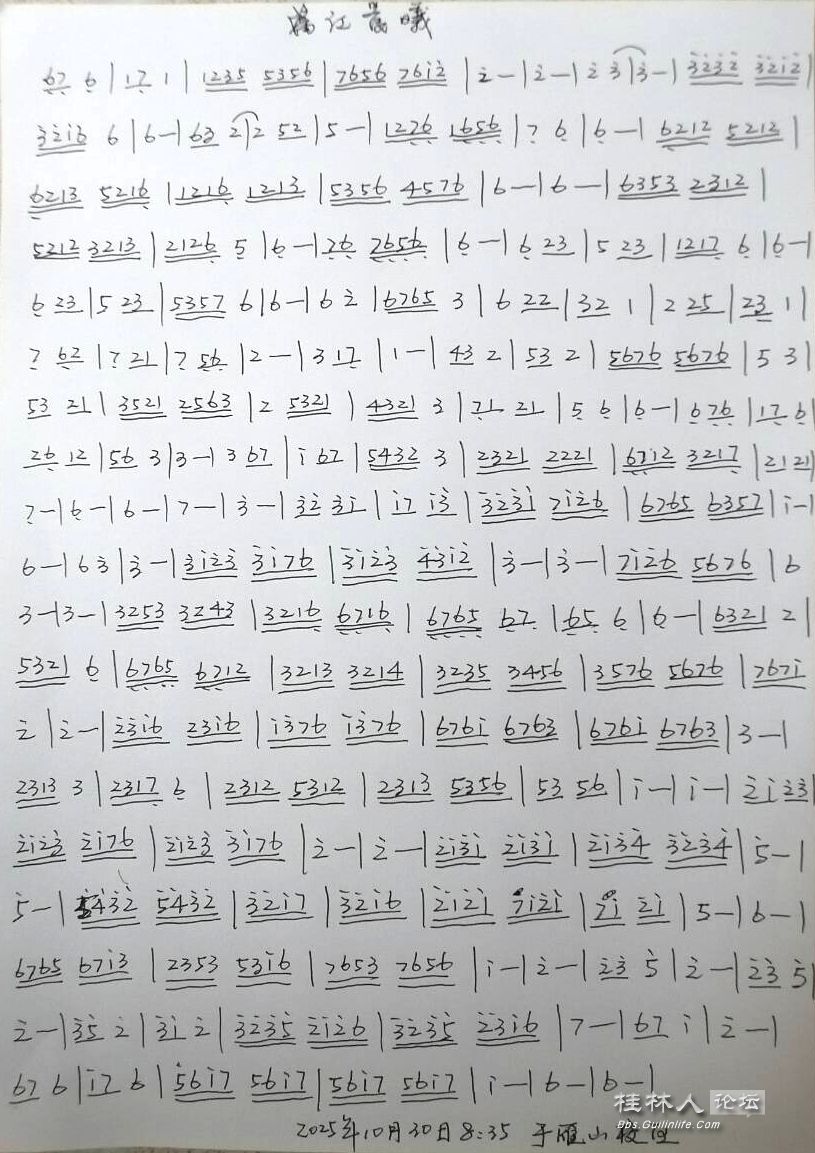 江 晨 曦
67 6 | 17 1 | 1235 5356 | 7656 7612 | 2 — | 2 — | 2 3 | 3 — | 3232 3212 |
3216 6 | 6 — | 63 2 | 2 52 | 5 — | 1276 1656 | 7 6 | 6 — | 6212 5212 |
6213 5216 | 1216 1213 | 5356 4576 | 6 — | 6 — | 6353 2312 |
5212 3213 | 2126 5 | 6 — | 76 7656 | 6 — | 6 23 | 5 23 | 1217 6 | 6 — |
6 23 | 5 23 | 5357 6 | 6 — | 6 2 | 6765 3 | 6 22 | 32 1 | 2 25 | 23 1 |
7 62 | 7 21 | 7 56 | 2 — | 3 17 | 1 — | 43 2 | 53 2 | 5676 5676 | 5 3 |
53 21 | 3521 2563 | 2 5321 | 4321 3 | 71 21 | 5 6 | 6 — | 676 | 17 6 |
26 12 | 56 3 | 3 — | 3 67 | i 67 | 5432 3 | 2321 2221 | 6712 3217 | 2121 |
7 — | 6 — | 6 — | 7 — | 3 — | 32 31 | 17 13 | 3231 7126 | 6765 6357 | i — |
6 — | 6 3 | 3 — | 3123 3176 | 3123 4312 | 3 — | 3 — | 7126 5676 | 6
3 — | 3 — | 3253 3243 | 3216 6716 | 6765 67 | 65 6 | 6 — | 6321 2 |
5321 6 | 6765 6712 | 3213 3214 | 3235 3456 | 3576 5676 | 7671
2 | 2 — | 2316 2316 | 1376 1376 | 6761 6763 | 6761 6763 | 3 — |
2313 3 | 2317 6 | 2312 5312 | 2313 5356 | 53 56 | i — | i — | 21 23 |
2123 2176 | 2123 3176 | 2 — | 2 — | 2131 2131 | 2134 3234 | 5 — |
5 — | 5432 5432 | 3217 | 3216 | 2121 7121 | 71 21 | 5 — | 6 — |
6765 6713 | 2353 5316 | 7653 7656 | i — | 2 — | 23 5 | 2 — | 23 5 |
2 — | 35 2 | 31 2 | 3235 2126 | 3235 2316 | 7 — | 67 i | 2 — |
67 6 | 17 6 | 5617 5617 | 5617 5617 | i — | 6 — | 6 — |
2025年10月30日8:35 于雁山校区
桂林人论坛
Bbs.Guilinlife.Com